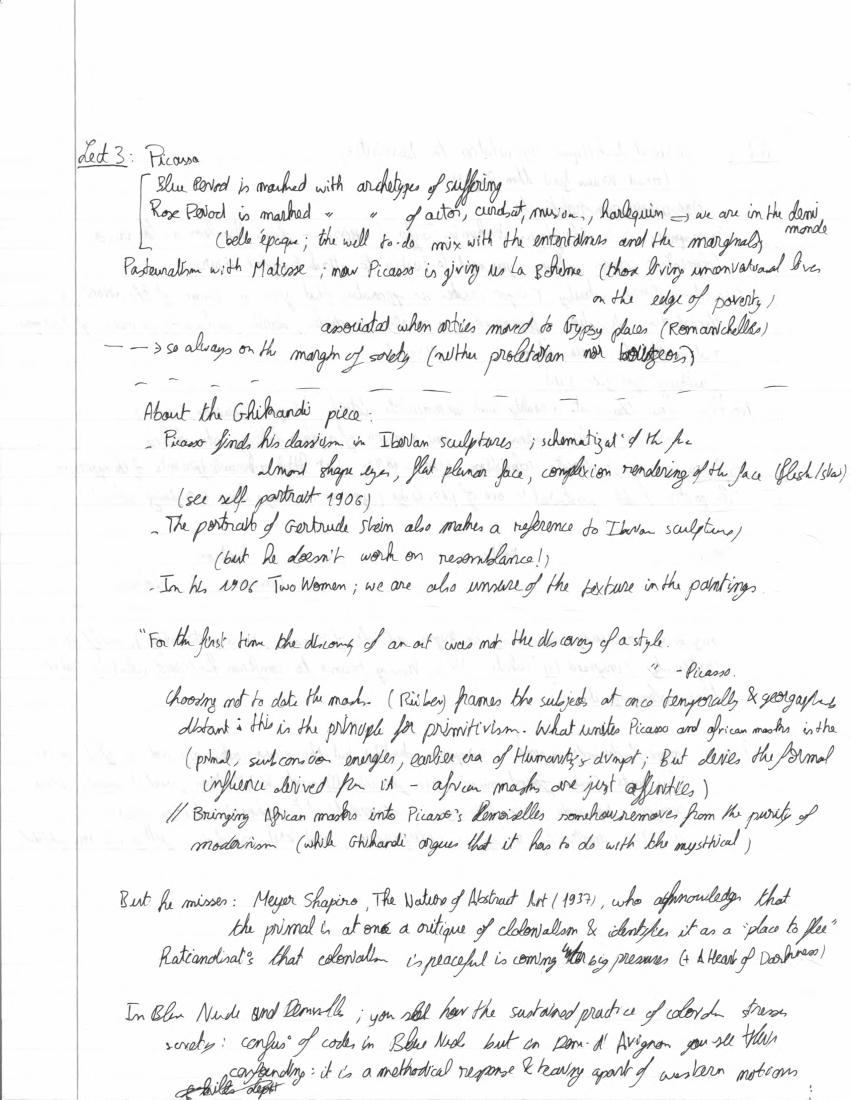 Lect 3: Picasso
Blue Period is marked with archetypes of suffering
Rose Period is marked " " of actor, acrobat, musician, harlequin → we are in the demi
monde
(belle époque; the well to-do mix with the entertainers and the marginals)
Pastoralism with Matisse; now Picasso is giving us La Bohème (those living unconventional lives
on the edge of poverty)
associated when artists moved to Gypsy places (Romanichelles)
— — → so always on the margin of society (neither proletarian nor bourgeois)
About the Ghikandi piece:
- Picasso finds his classism in Iberian sculptures; schematizat° of the face
almond shape eyes, flat planar face, complexion rendering of the face (flesh/skin)
(see self portrait 1906)
- The portrait of Gertrude Stein also makes a reference to Iberian sculpture)
(but he doesn't work on resemblance!)
- In his 1906 Two Women; we are also unsure of the texture in the paintings
"For the first time the discovery of an art was not the discovery of a style.
" - Picasso.
Choosing not to date the mask. (Rubin) frames the subjects at once temporally & geographic
distant: this is the principle for primitivism. What unites Picasso and african masks is the
(primal, subconscious energies, earlier era of Humanity's dvmpt; But denies the formal
influence derived from it - african masks are just affinities)
// Bringing African masks into Picasso's Demoiselles somehow removes from the purity of
modernism (while Ghikandi argues that it has to do with the mysthical)
But he misses: Meyer Shapiro, The Nature of Abstract Art (1937), who aghnowledge that
the primal is at once a critique of clolonialism & identifies it as a "place to flee"
that colonialism is peaceful is coming big pressures (+ A Heart of Darkness)
In Blue Nude and Demoiselle; you see how the sustained practice of color on stresses
society: confus° of codes in Blue Nude but in Dem. d'Avignon you see this
confounding: it is a methodical response & tearing apart of western notions